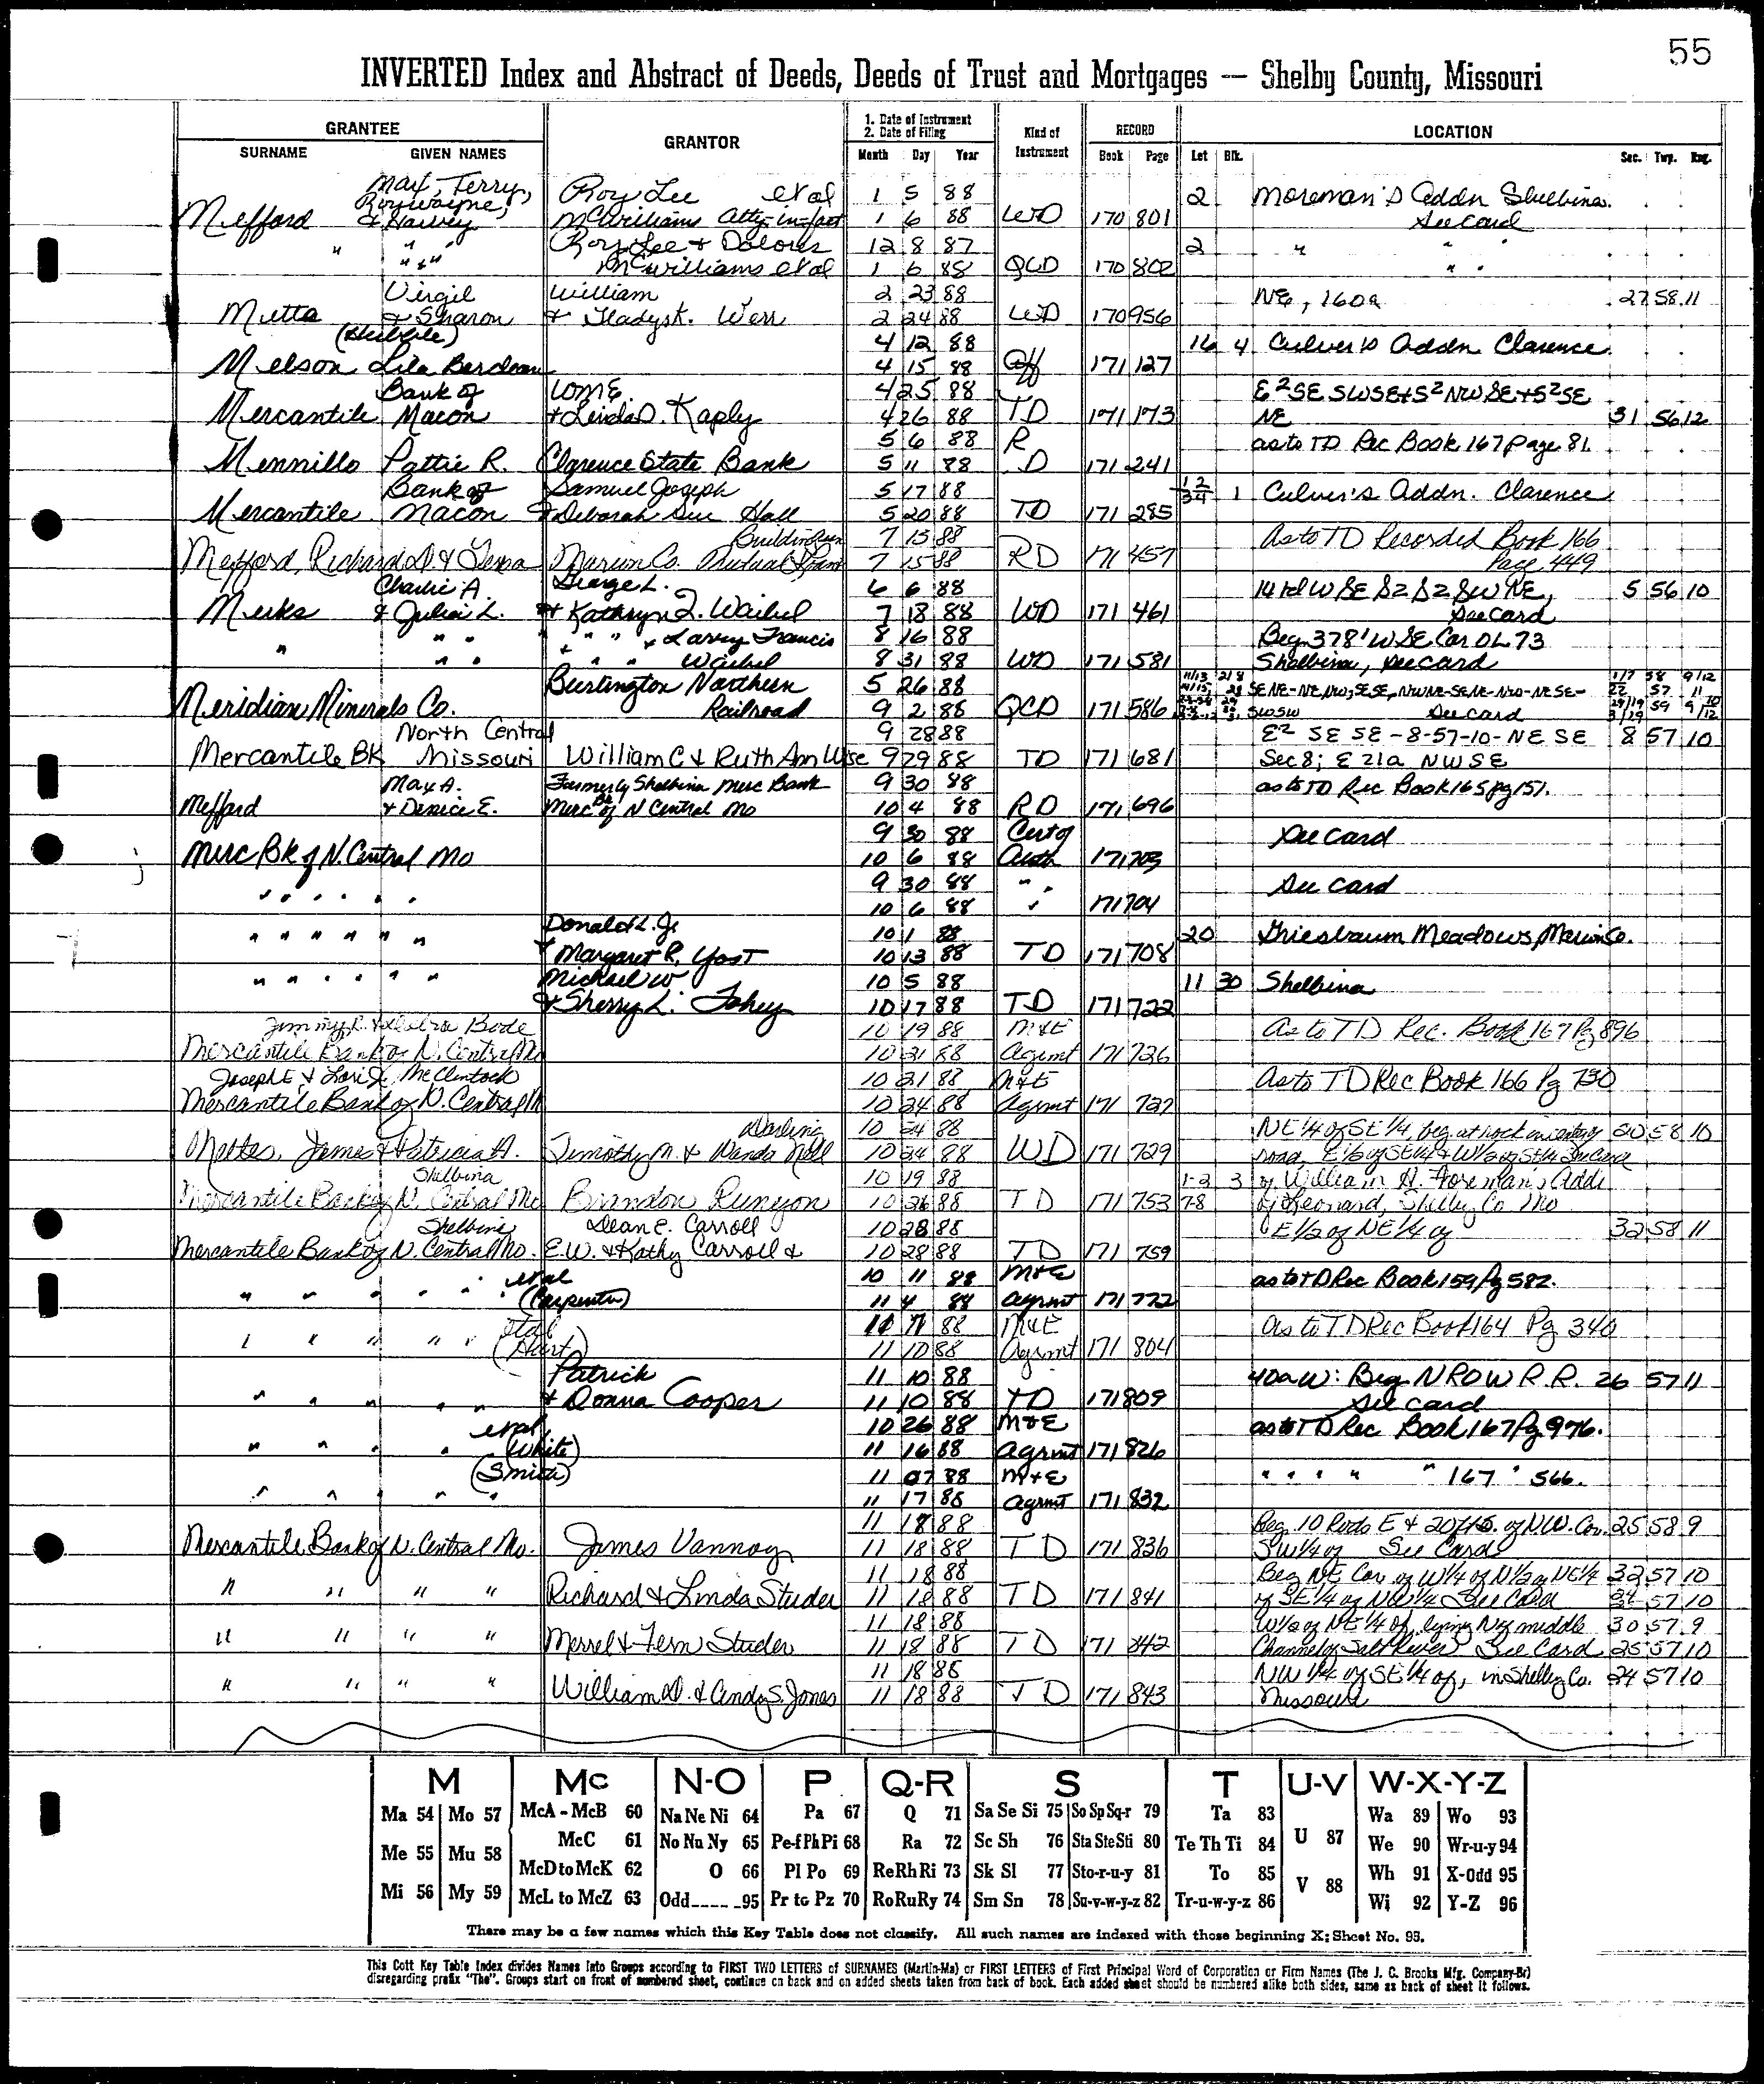 55
INVERTED Index and Abstract of Deeds, Deeds of Trust and Mortgages — Shelby County, Missouri
GRANTEE GRANTOR 1. Date of Instrument 2. Date of Filing Kind of Instrument RECORD LOCATION
SURNAME GIVEN NAMES Month Day Year Book Page Lot Blk. Sec. Twp. Rng.
Max, Terry, Roy Lee et al 1 5 88 2 Moreman's Addn Shelbina.
Mefford Roywayne, & Harvey McWilliams Atty-in-fact 1 6 88 WD 170 801 See Card
" " " Roy Lee + Dolores 12 8 87 2 " " "
" & " McWilliams et al 1 6 88 QCD 170 802 " "
Virgil William 2 23 88 NE, 160a 27 58 11
& Sharon + Gladys K. Werr 2 24 88 WD 170 956
4 12 88 16 4 Culver's Addn Clarence
Melson Lila Berdean 4 15 88 Aff 171 127
Bank of 4 25 88 E2SE SWSE+S2NWSE+S2SE
Mercantile Macon + Linda D. Kaply 4 26 88 TD 171 173 NE 31 56 12
5 6 88 R as to TD Rec Book 167 Page 81
Mennillo Pattie R. Clarence State Bank 5 11 88 D 171 241
Bank of Samuel Joseph 5 17 88 1 2 3 4 1 Culver's Addn. Clarence
Mercantile Macon & Deborah Sue Hall 5 20 88 TD 171 285
7 15 88 As to TD Recorded Book 166
Mefford, Richard D. & Marion Co. Mutual 7 15 88 RD 171 457 Page 449
Charlie A. George L. 6 6 88 14 rd W SE S2 S2 SW NE, 5 56 10
Merks & Julia L. + Kathryn I. Waibel 7 18 88 WD 171 461 See card
" " " + " " + Larry Francis 8 16 88 Beg 378' W SE Cor OL 73
" " " " Waibel 8 31 88 WD 171 581 Shelbina, See card
Burlington Northern 5 26 88 SENE-NENW, SESE, NWNE-SENE-NWD-NESE-
Meridian Minerals Co. Railroad 9 2 88 QCD 171 586 SWSW See card
North Central 9 28 88 E2 SE SE-8-57-10-NE SE 8 57 10
Mercantile BK Missouri William C & Ruth Ann Wise 9 29 88 TD 171 681 Sec 8; E 21a NWSE
Max A. Formerly Shelbina Merc Bank 9 30 88 as to TD Rec Book 165 pg 151.
Mefford + Denice E. Merc Bk of N Central Mo 10 4 88 RD 171 696
9 30 88 Cert of See card
Merc Bk of N. Central Mo 10 6 88 Auth 171 703
9 30 88 " " See card
" " " " " " 10 6 88 " 171 704
Donald L. Jr. 10 1 88 20 Griesbaum Meadows, Marion Co.
" " " " " " & Margaret R. Yost 10 13 88 TD 171 708
" " " " " " Michael W 10 5 88 11 30 Shelbina
& Sherry L. Fahey 10 17 88 TD 171 722
Jimmy R. & Debra Bode 10 19 88 M&E As to TD Rec. Book 167 Pg 896
Mercantile Bank of N. Central Mo 10 21 88 Agrmt 171 726
Joseph E & Lori J. McClintock 10 21 88 M&E As to TD Rec Book 166 Pg 730
Mercantile Bank of N. Central M 10 24 88 Agrmt 171 727
Darling 10 24 88 NE 1/4 of SE 1/4, beg at rock in center 20 58 10
James & Patricia A. Timothy M. & Wanda Nell 10 24 88 WD 171 729 road, E 1/2 of SE 1/4 & W 1/2 of SE 1/4 See Card
Shelbina 10 19 88 1-2 3 of William H. Foreman's Addi
Mercantile Bank of N. Central Mo Brandon Runyon 10 26 88 TD 171 753 7-8 of Leonard, Shelby Co Mo
Shelbina Dean E. Carroll 10 28 88 E 1/2 of NE 1/4 of 32 58 11
Mercantile Bank of N. Central Mo. E.W. & Kathy Carroll & 10 28 88 TD 171 759
et al 10 11 88 M+E as to TD Rec Book 159 Pg 582.
" " " " " (Carpenter) 11 4 88 agrmt 171 772
et al 11 88 M&E As to TD Rec Book 164 Pg 340
" " " " " (Hart) 11 10 88 Agrmt 171 804
Patrick 11 10 88 40a W: Beg N ROW R.R. 26 57 11
" " " " " + Donna Cooper 11 10 88 TD 171 809 See card
et al 10 26 88 M+E as to TD Rec Book 167 Pg 976.
" " " " (White) 11 16 88 agrmt 171 826
(Smith) 11 07 88 M+E " " " " " 167 " 566.
" " " " 11 17 88 agrmt 171 832
11 18 88 Beg. 10 Rods E & 20 ft S. of NW. Cor. 25 58 9
Mercantile Bank of N. Central Mo. James Vannoy 11 18 88 TD 171 836 SW 1/4 of See Card
11 18 88 Beg NE Cor of W 1/4 of N 1/2 of NE 1/4 32 57 10
" " " " Richard & Linda Studer 11 18 88 TD 171 841 of SE 1/4 of NW 1/4 See Card 57 10
11 18 88 W 1/2 of NE 1/4 of, lying N of middle 30 57 9
" " " " Merrel & Fern Studer 11 18 88 TD 171 842 Channel of Salt River See Card 25 57 10
11 18 88 NW 1/4 of SE 1/4 of, in Shelby Co. 24 57 10
" " " " William D. & Cindy S. Jones 11 18 88 TD 171 843 Missouri
M Mc N-O P Q-R S T U-V W-X-Y-Z
Ma 54 Mo 57 McA - McB 60 Na Ne Ni 64 Pa 67 Q 71 Sa Se Si 75 So Sp Sq-r 79 Ta 83 U 87 Wa 89 Wo 93
Me 55 Mu 58 McC 61 No Nu Ny 65 Pe-f Ph Pi 68 Ra 72 Sc Sh 76 Sta Ste Sti 80 Te Th Ti 84 We 90 Wr-u-y 94
McD to McK 62 O 66 Pl Po 69 Re Rh Ri 73 Sk Sl 77 Sto-r-u-y 81 To 85 V 88 Wh 91 X-Odd 95
Mi 56 My 59 McL to McZ 63 Odd 95 Pr to Pz 70 Ro Ru Ry 74 Sm Sn 78 Su-v-w-y-z 82 Tr-u-w-y-z 86 Wi 92 Y-Z 96
There may be a few names which this Key Table does not classify. All such names are indexed with those beginning X; Sheet No. 95.
This Cott Key Table Index divides Names into Groups according to FIRST TWO LETTERS of SURNAMES (Martin-Ma) or FIRST LETTERS of First Principal Word of Corporation or Firm Names (The J. C. Brooks Mfg. Company-Br)
disregarding prefix "The". Groups start on front of numbered sheet, continue on back and on added sheets taken from back of book. Each added sheet should be numbered alike both sides, same as back of sheet it follows.